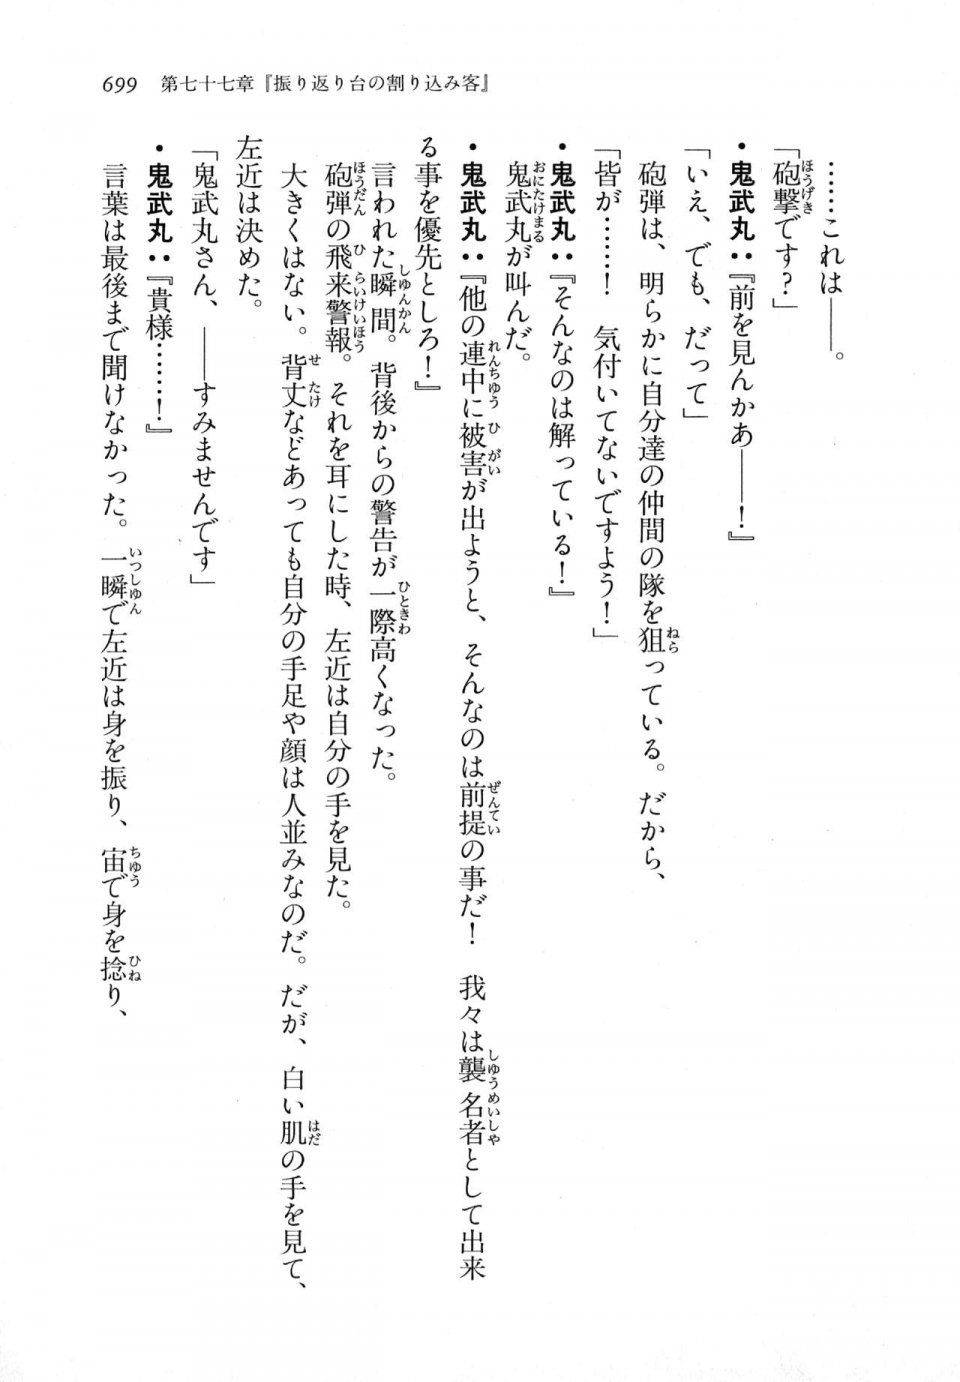 699　第七十七章『振り返り台の割り込み客』
……これは――。
「砲撃です？」
・鬼武丸：『前を見んかあ――！』
「いえ、でも、だって」
砲弾は、明らかに自分達の仲間の隊を狙っている。だから、
「皆が……！　気付いてないですよう！」
・鬼武丸：『そんなのは解っている！』
鬼武丸が叫んだ。
・鬼武丸：『他の連中に被害が出ようと、そんなのは前提の事だ！　我々は襲名者として出来
る事を優先としろ！』
言われた瞬間。背後からの警告が一際高くなった。
砲弾の飛来警報。それを耳にした時、左近は自分の手を見た。
大きくはない。背丈などあっても自分の手足や顔は人並みなのだ。だが、白い肌の手を見て、
左近は決めた。
「鬼武丸さん、――すみませんです」
・鬼武丸：『貴様……！』
言葉は最後まで聞けなかった。一瞬で左近は身を振り、宙で身を捻り、